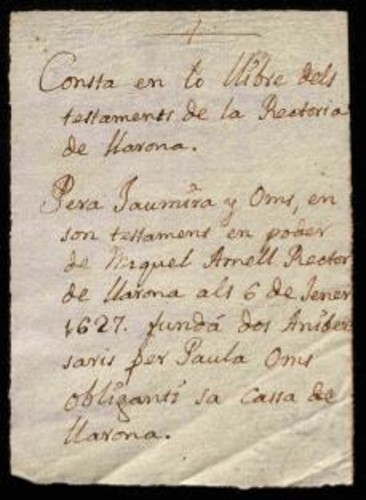 Consta en lo llibre dels
testaments de la Rectoria
de llarona.
Pera Jaumira y Oms, en
son testament en poder
de Miquel Arnell Rector
de llarona als 6 de Jener
1627. fundá dos Aniber
saris per Paula Oms
obliganti sa cassa de
llarona.